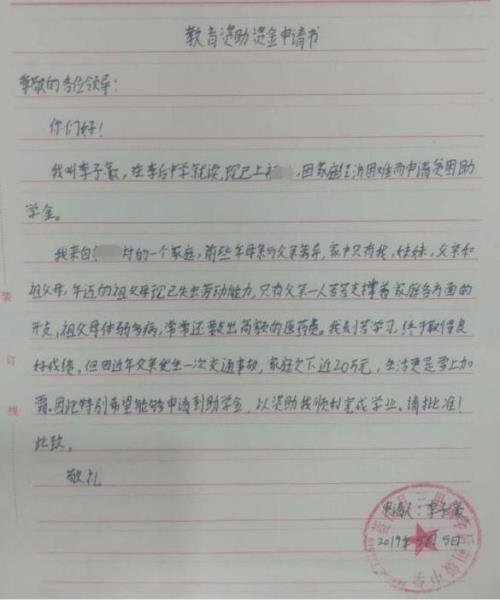 教育资助资金申请书
尊敬的各位领导:
你们好!
我叫李子豪,在李后中学就读,现已上初,因家庭经济困难而申请贫困助
学金。
我来自村的一个家庭,前些年母亲与父亲离异,家中只有我,妹妹,父亲和
祖父母,年迈的祖父母现已失去劳动能力,只有父亲一人苦苦支撑着家庭各方面的
开支,祖父母体弱多病,常常还要支出高额的医药费。我刻苦学习,终于取得良
好成绩,但因近年父亲发生一次交通事故,家庭欠下近20万元,生活更是雪上加
霜。因此特别希望能够申请到助学金,以资助我顺利完成学业。请批准!
此致,
敬礼
申请人:李子豪
2019年5月5日
装
订
线
初级中学